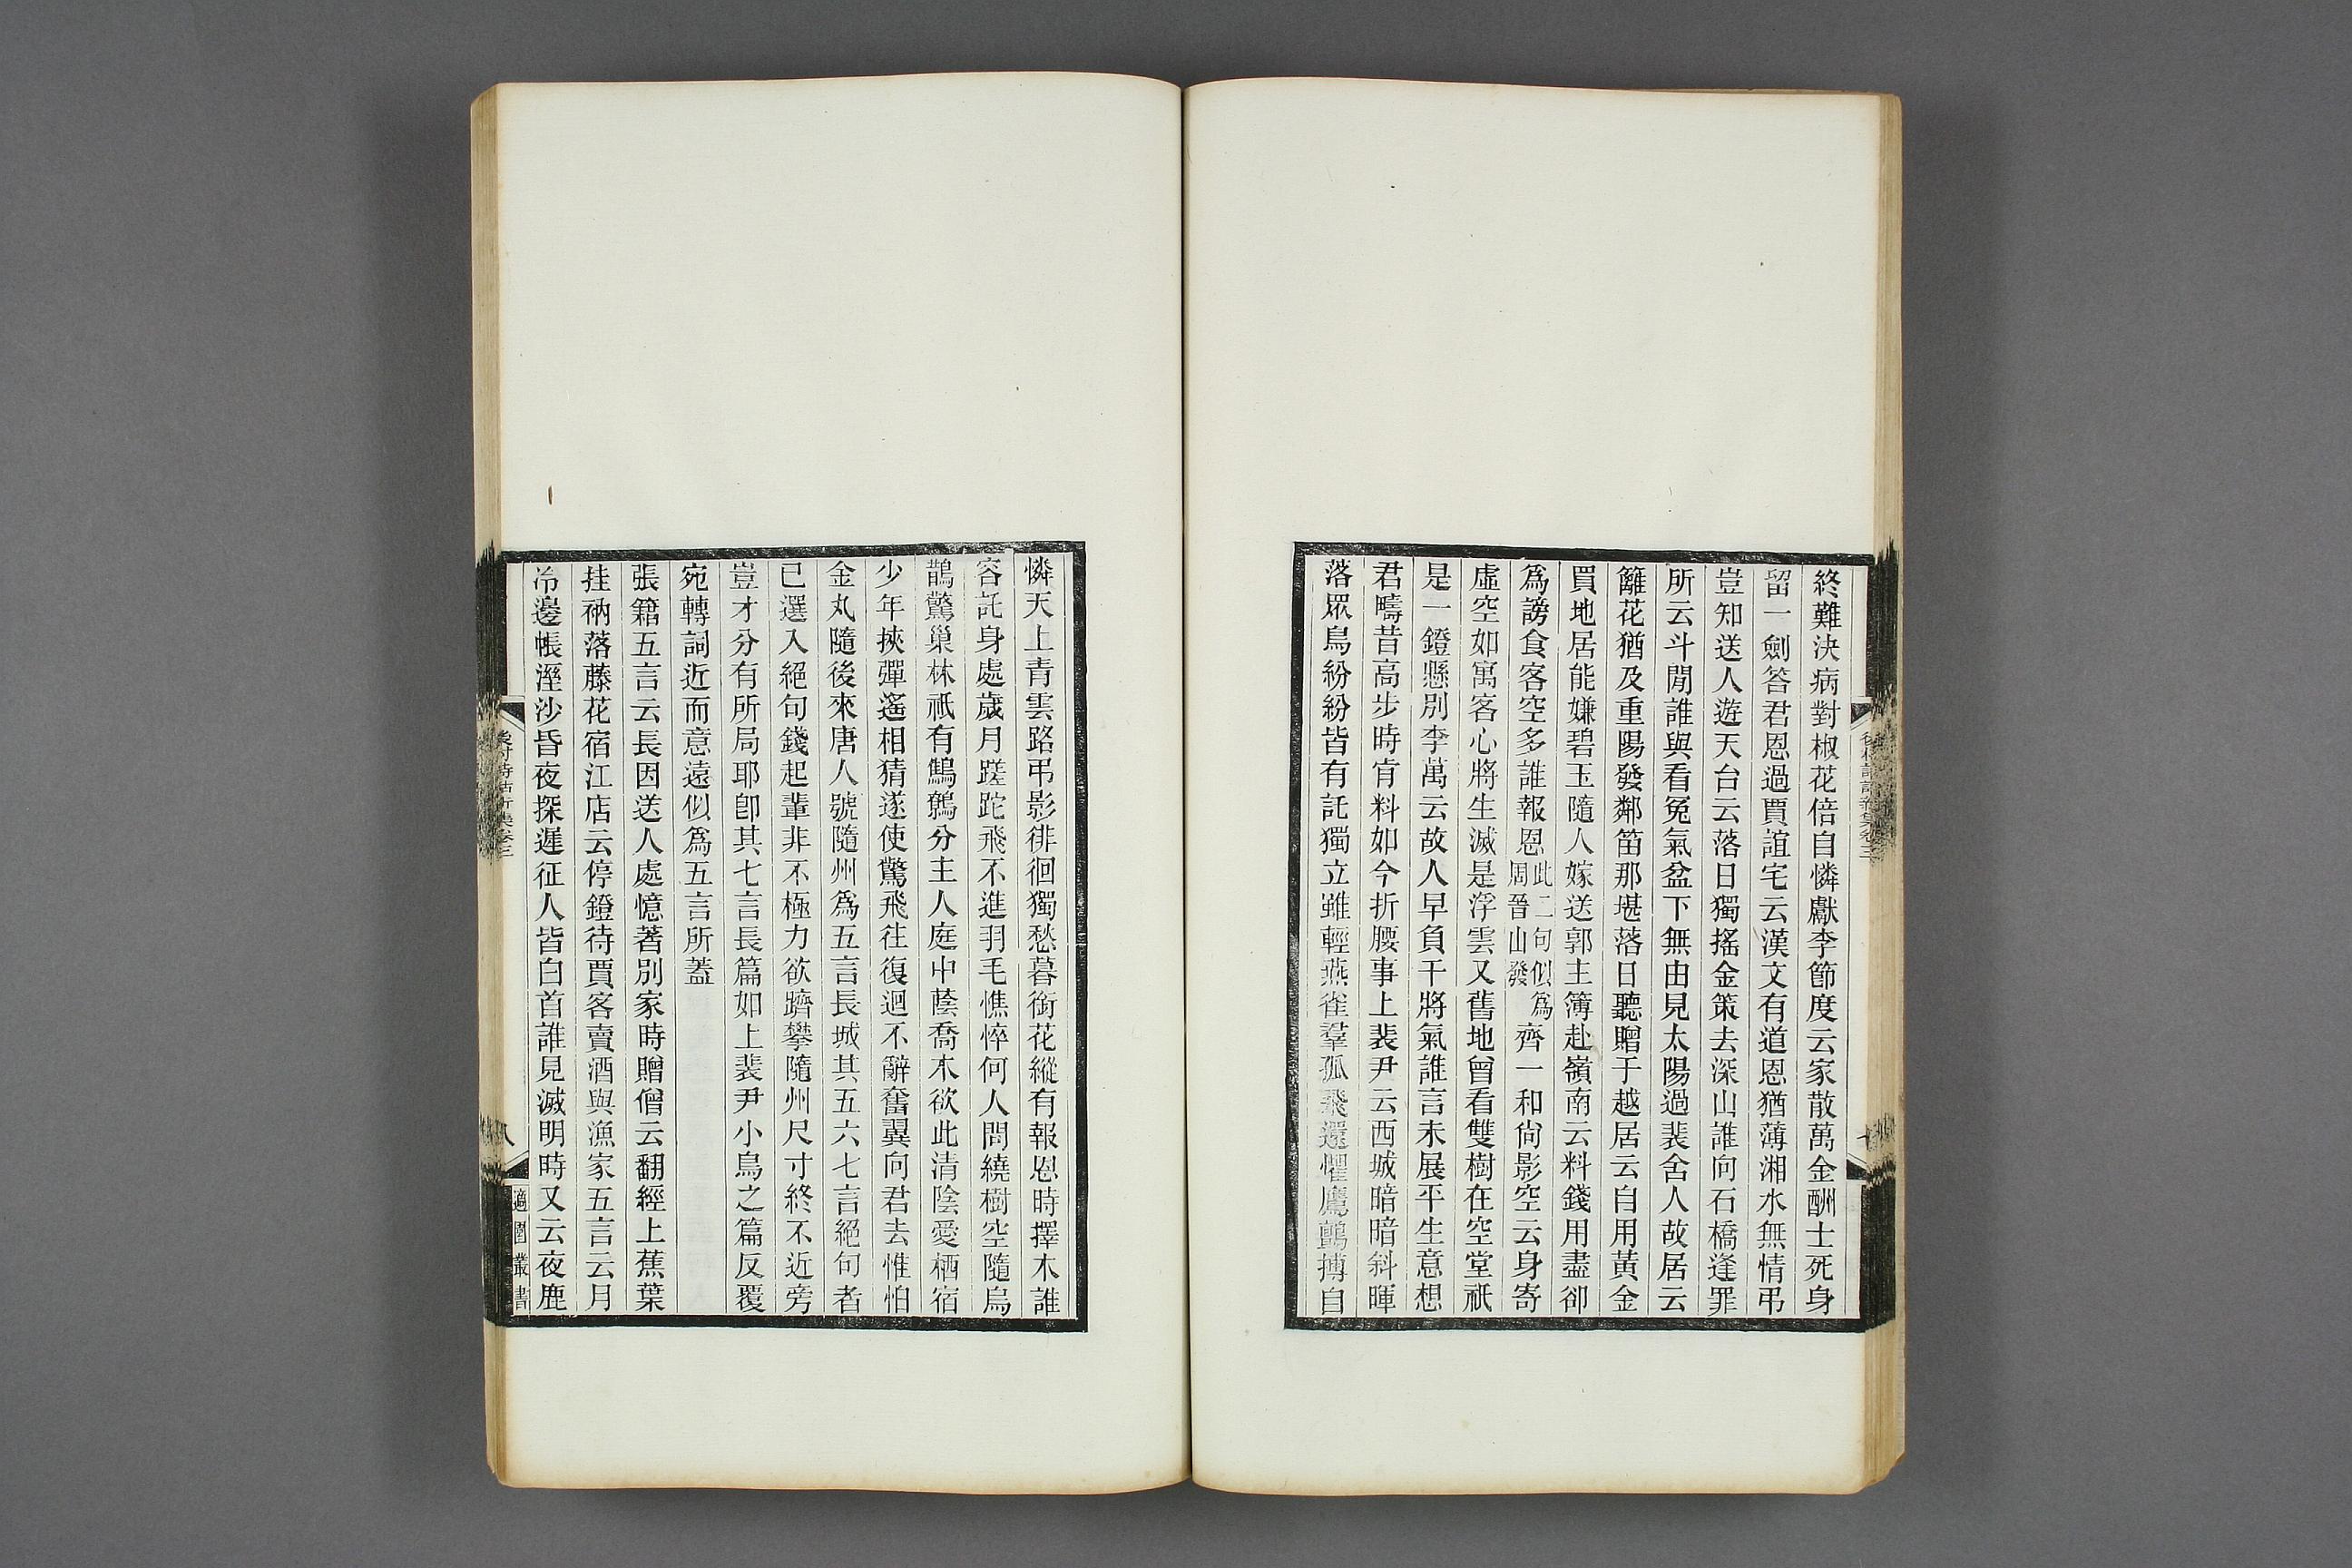 終難決病對椒花倍自憐獻李節度云家散萬金酬士死身
留一劍答君恩過賈誼宅云漢文有道恩猶薄湘水無情弔
豈知送人遊天台云落日獨搖金策去深山誰向石橋逢罪
所云斗閒誰與看冤氣盆下無由見太陽過裴舍人故居云
籬花猶及重陽發鄰笛那堪落日聽贈于越居云自用黃金
買地居能嫌碧玉隨人嫁送郭主簿赴嶺南云料錢用盡卻
爲謗食客空多誰報恩此二句似爲周晉山發齊一和尙影空云身寄
虛空如寓客心將生滅是浮雲又舊地曾看雙樹在空堂祇
是一鐙懸別李萬云故人早負干將氣誰言未展平生意想
君疇昔高步時肯料如今折腰事上裴尹云西城暗暗斜暉
落眾鳥紛紛皆有託獨立雖輕燕雀羣孤飛還懼鷹鸇搏自
憐天上青雲路弔影徘徊獨愁暮銜花縱有報恩時擇木誰
容託身處歲月蹉跎飛不進羽毛憔悴何人問繞樹空隨烏
鵲驚巢林祇有鷦鷯分主人庭中蔭喬木欲此清陰愛栖宿
少年挾彈遙相猜遂使驚飛往復迴不辭奮翼向君去惟怕
金丸隨後來唐人號隨州爲五言長城其五六七言絕句者
已選入絕句錢起輩非不極力欲躋攀隨州尺寸終不近旁
豈才分有所局耶卽其七言長篇如上裴尹小鳥之篇反覆
宛轉詞近而意遠似爲五言所蓋
張籍五言云長因送人處憶著別家時贈僧云翻經上蕉葉
挂衲落藤花宿江店云停鐙待賈客賣酒與漁家五言云月
冷邊帳溼沙昏夜探遲征人皆白首誰見滅明時又云夜鹿
後村詩話新集卷三
八
適園叢書